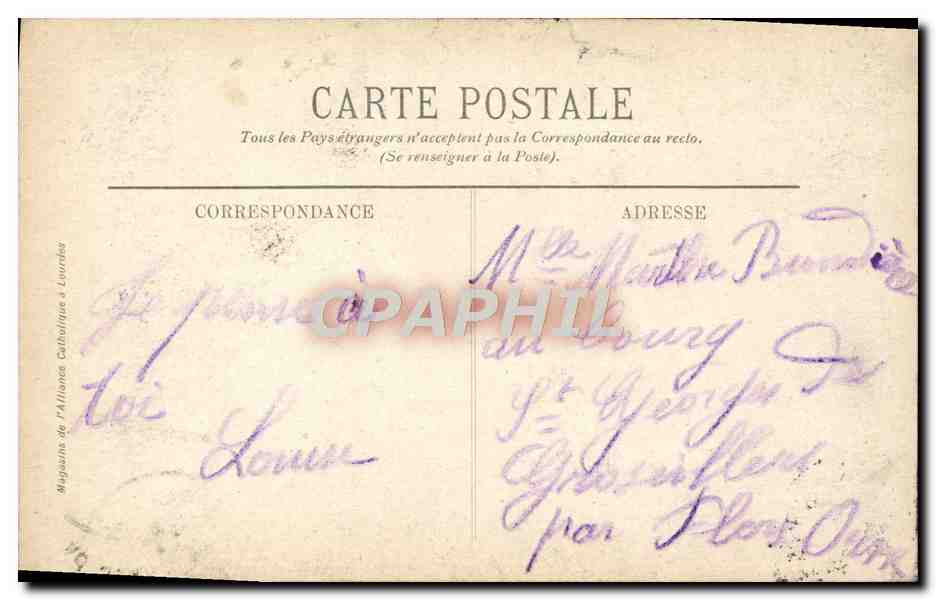 CARTE POSTALE
Tous les Pays étrangers n'acceptent pas la Correspondance au recto.
(Se renseigner à la Poste).
CORRESPONDANCE
ADRESSE
Magasins de l'Alliance Catholique à Lourdes
Je pense à
toi
Louise
Mlle Marthe
au bourg
St Georges des
Groseillers
par Flers Orne
CPAPHIL